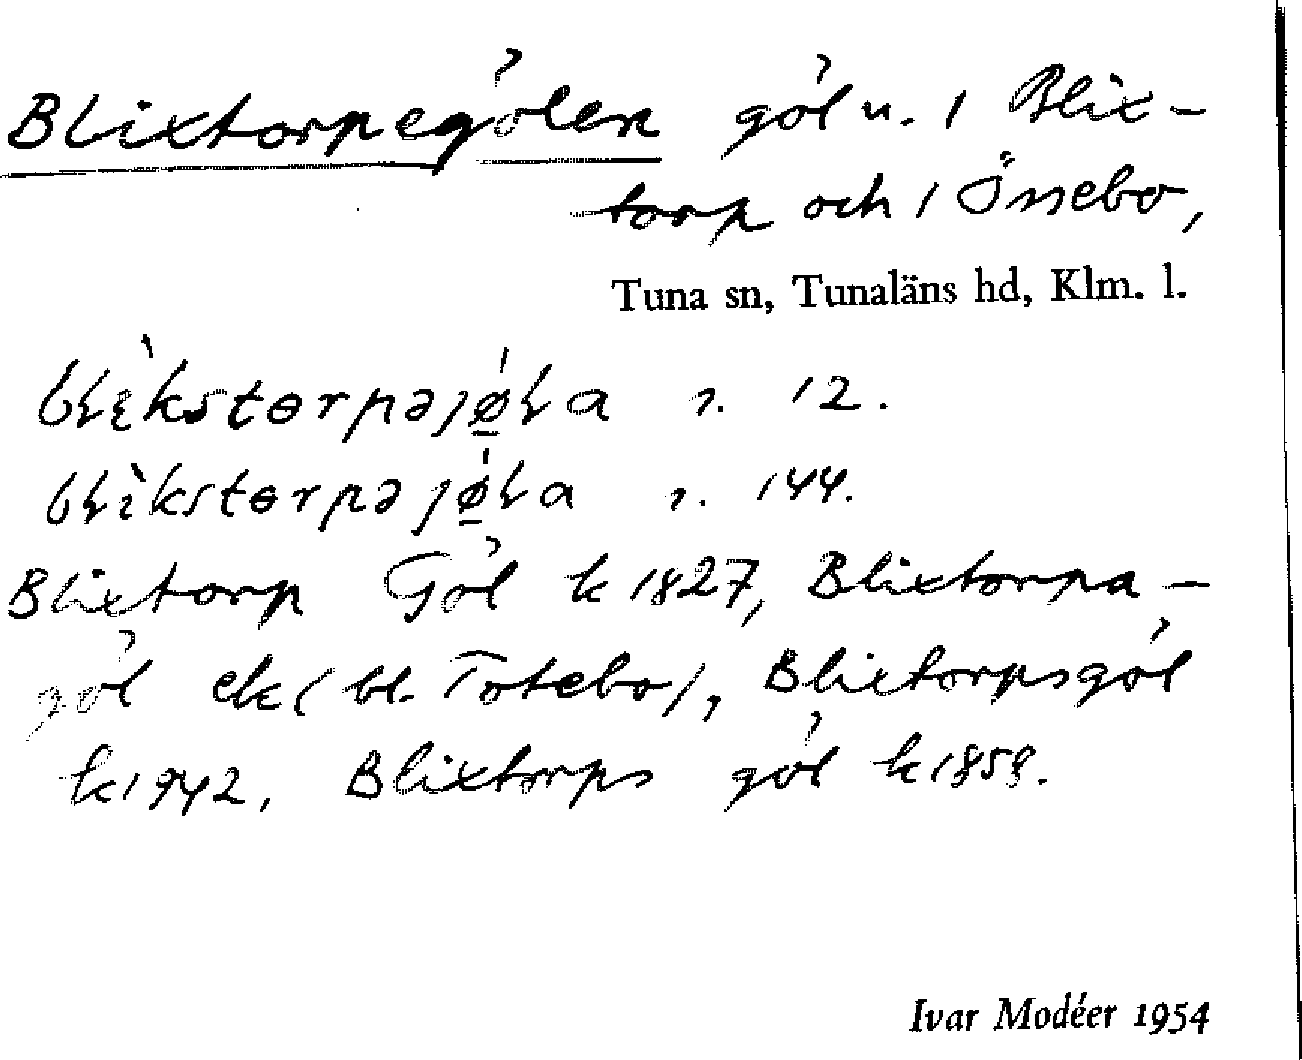 Blixtorpegölen göl u. / Blix-
torp och / Össebo,
Tuna sn, Tunaläns hd, Klm. l.
12.
144.
Blixtorp Göl k 1827, Blixtorpa-
göl ek (bl. Totebo), Blixtorpsgöl
k 1942, Blixtorps göl k 1858.
Ivar Modéer 1954